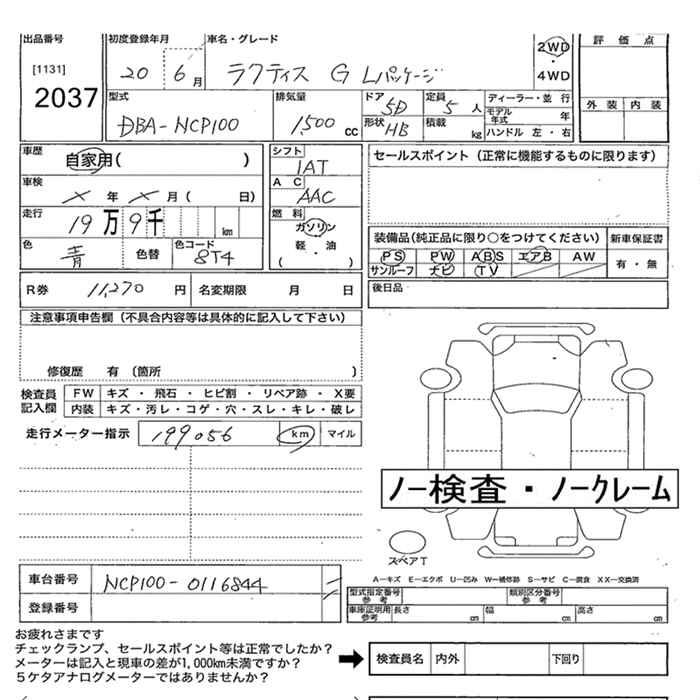 出品番号 初度登録年月 車名・グレード
[1131]
2037
20 6月 ラクティス G Lパッケージ
2WD
4WD
評価点
外装 内装
型式 排気量 ドア 定員 ディーラー・並行
DBA-NCP100 1,500cc 5D 5人 モデル年式 年
形状 HB 積載 kg ハンドル 左・右
車歴 自家用( )
車検 × 年 × 月 ( 日)
走行 19万9千 km
色 青 色替 色コード 8T4
シフト
IAT
AC
AAC
燃料
ガソリン
軽・油
( )
セールスポイント(正常に機能するものに限ります)
装備品(純正品に限り○をつけてください) 新車保証書
PS PW ABS エアB AW 有・無
サンルーフ ナビ TV
R券 11,270 円 名変期限 月 日
後日品
注意事項申告欄(不具合内容等は具体的に記入して下さい)
修復歴 有 (箇所 )
検査員記入欄
FW キズ・飛石・ヒビ割・リペア跡・X要
内装 キズ・汚レ・コゲ・穴・スレ・キレ・破レ
走行メーター指示 199056 km マイル
ノー検査・ノークレーム
スペアT
A―キズ E―エクボ U―凹み W―補修跡 S―サビ C―腐食 XX―交換済
車台番号 NCP100-0116844
登録番号
型式指定番号 参考 類別区分番号 参考
車庫証明用 参考 長さ cm 幅 cm 高さ cm
お疲れさまです
チェックランプ、セールスポイント等は正常でしたか?
メーターは記入と現車の差が1,000km未満ですか?
5ケタアナログメーターではありませんか?
検査員名 内外 下回り